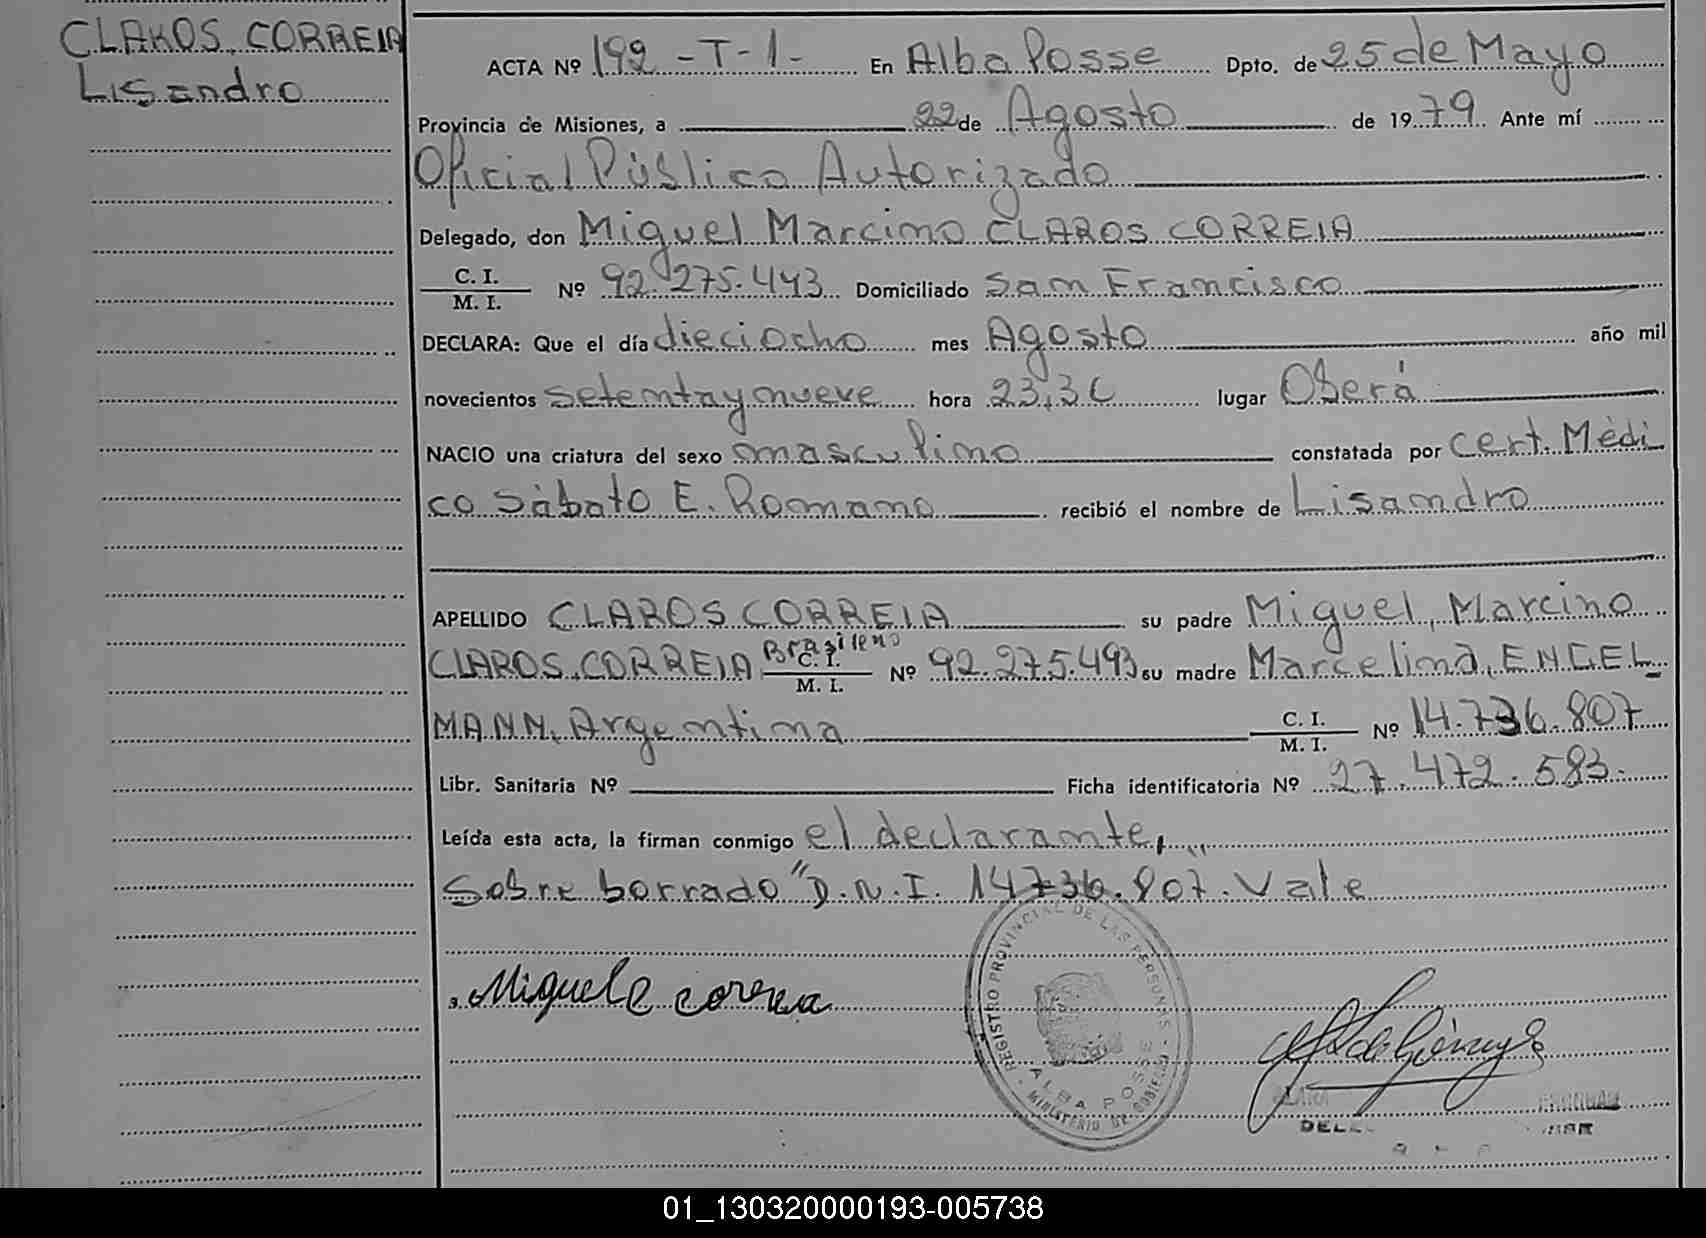 CLAROS CORREIA
Lisandro
ACTA Nº 192 - T - 1 - En Alba Posse Dpto. de 25 de Mayo
Provincia de Misiones, a 22 de Agosto de 1979 Ante mí
Oficial Público Autorizado
Delegado, don Miguel Marcino CLAROS CORREIA
C. I.
M. I. Nº 92.275.493 Domiciliado San Francisco
DECLARA: Que el día dieciocho mes Agosto año mil
novecientos setenta y nueve hora 23,30 lugar Oberá
NACIO una criatura del sexo masculino constatada por Cert. Médi
co Sábato E. Romano recibió el nombre de Lisandro
APELLIDO CLAROS CORREIA su padre Miguel, Marcino
CLAROS CORREIA Brasileno C. I. M. I. Nº 92.275.493 su madre Marcelina, ENGEL
MANN, Argentina C. I. M. I. Nº 14.736.807
Libr. Sanitaria Nº Ficha identificatoria Nº 27.472.583.
Leída esta acta, la firman conmigo el declarante,
Sobre borrado "D.N.I. 14736.807" Vale
Miguel C correa
REGISTRO PROVINCIAL DE LAS PERSONAS - MINISTERIO DE GOBIERNO -
ALBA POSSE
01_130320000193-005738